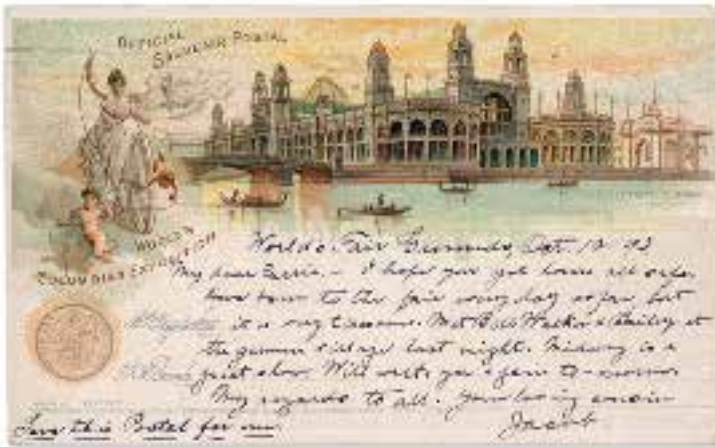 OFFICIAL
SOUVENIR POSTAL
WORLD'S
COLUMBIAN EXPOSITION
World's Fair Grounds, Oct. 12 93
My dear - I hope you got home all safe,
have been to the fair every day so far, but
it is very . Met Walker & Bailey at
the german village last night. Midway is a
great show. Will write you again to-morrow.
My regards to all. Your loving cousin
Jacob
Save this Postal for me.